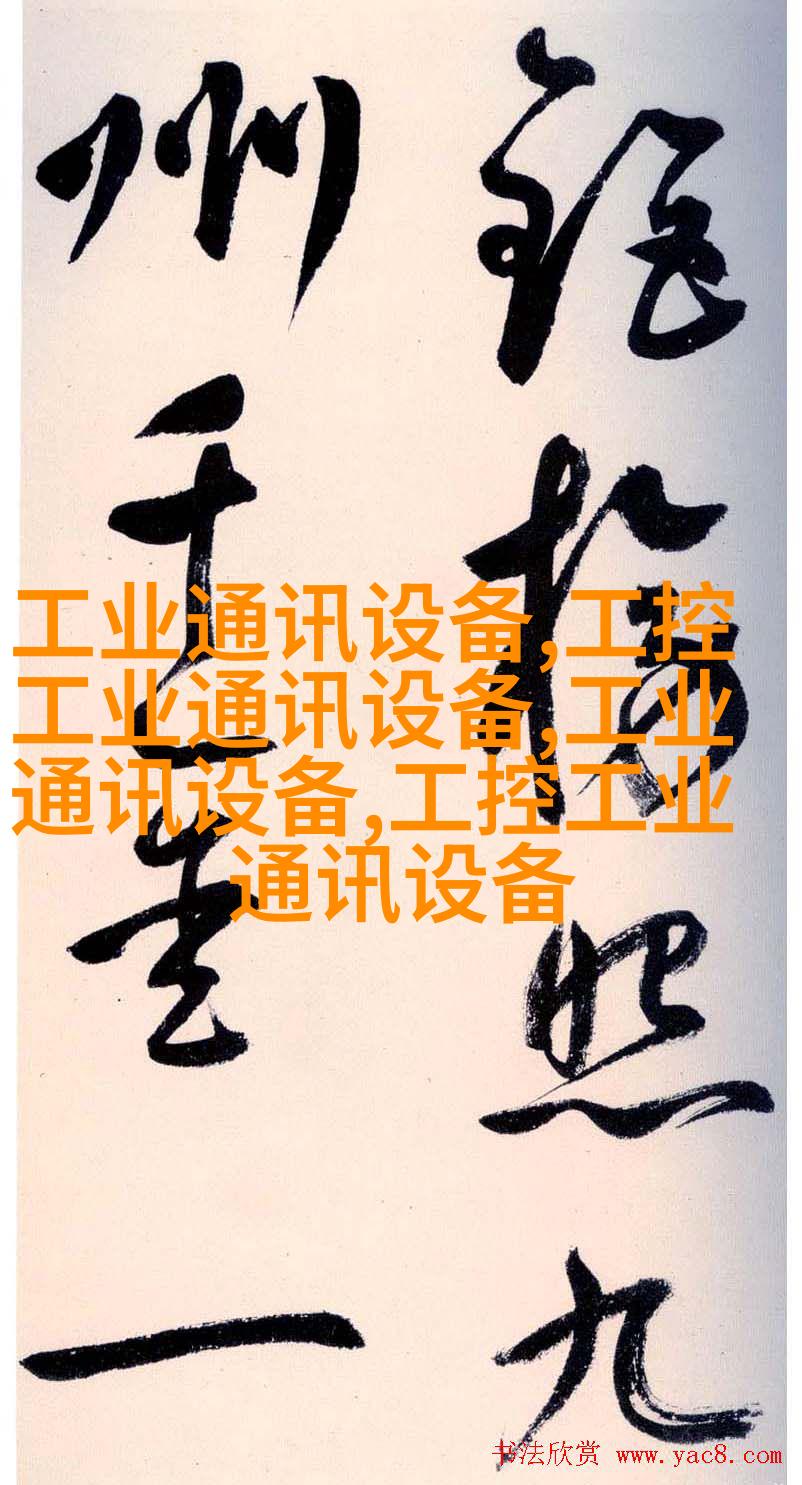 照九
州千
一
工业通讯设备,工控
工业通讯设备,工业
通讯设备,工控工业
通讯设备
书法欣赏 www.yac8.com